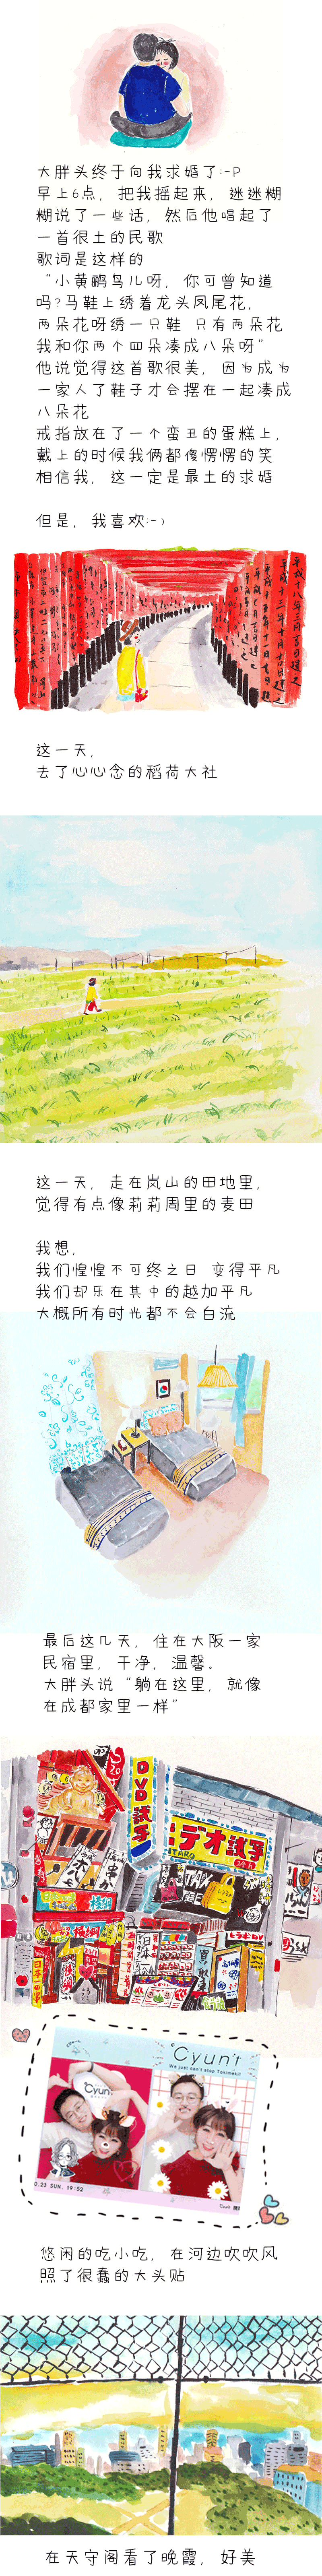 大胖头终于向我求婚了:-P
早上6点，把我摇起来，迷迷糊
糊说了一些话，然后他唱起了
一首很土的民歌
歌词是这样的
“小黄鹂鸟儿呀，你可曾知道
吗?马鞋上绣着龙头凤尾花，
两朵花呀绣一只鞋 只有两朵花
我和你两个四朵凑成八朵呀”
他说觉得这首歌很美，因为成为
一家人了鞋子才会摆在一起凑成
八朵花
戒指放在了一个蛮丑的蛋糕上，
戴上的时候我俩都傻愣愣的笑
相信我，这一定是最土的求婚
但是，我喜欢:-)
这一天，
去了心心念的稻荷大社
这一天，走在岚山的田地里，
觉得有点像莉莉周里的麦田
我想，
我们惶惶不可终之日 变得平凡
我们却乐在其中的越加平凡
大概所有时光都不会白流
最后这几天，住在大阪一家
民宿里，干净，温馨。
大胖头说“躺在这里，就像
在成都家里一样”
DVD試写
デオ試写
Cyun't
We just can't stop Tokimeki!
Cyun't
0.23 SUN. 19:52
悠闲的吃小吃，在河边吹吹风
照了很蠢的大头贴
在天守阁看了晚霞，好美